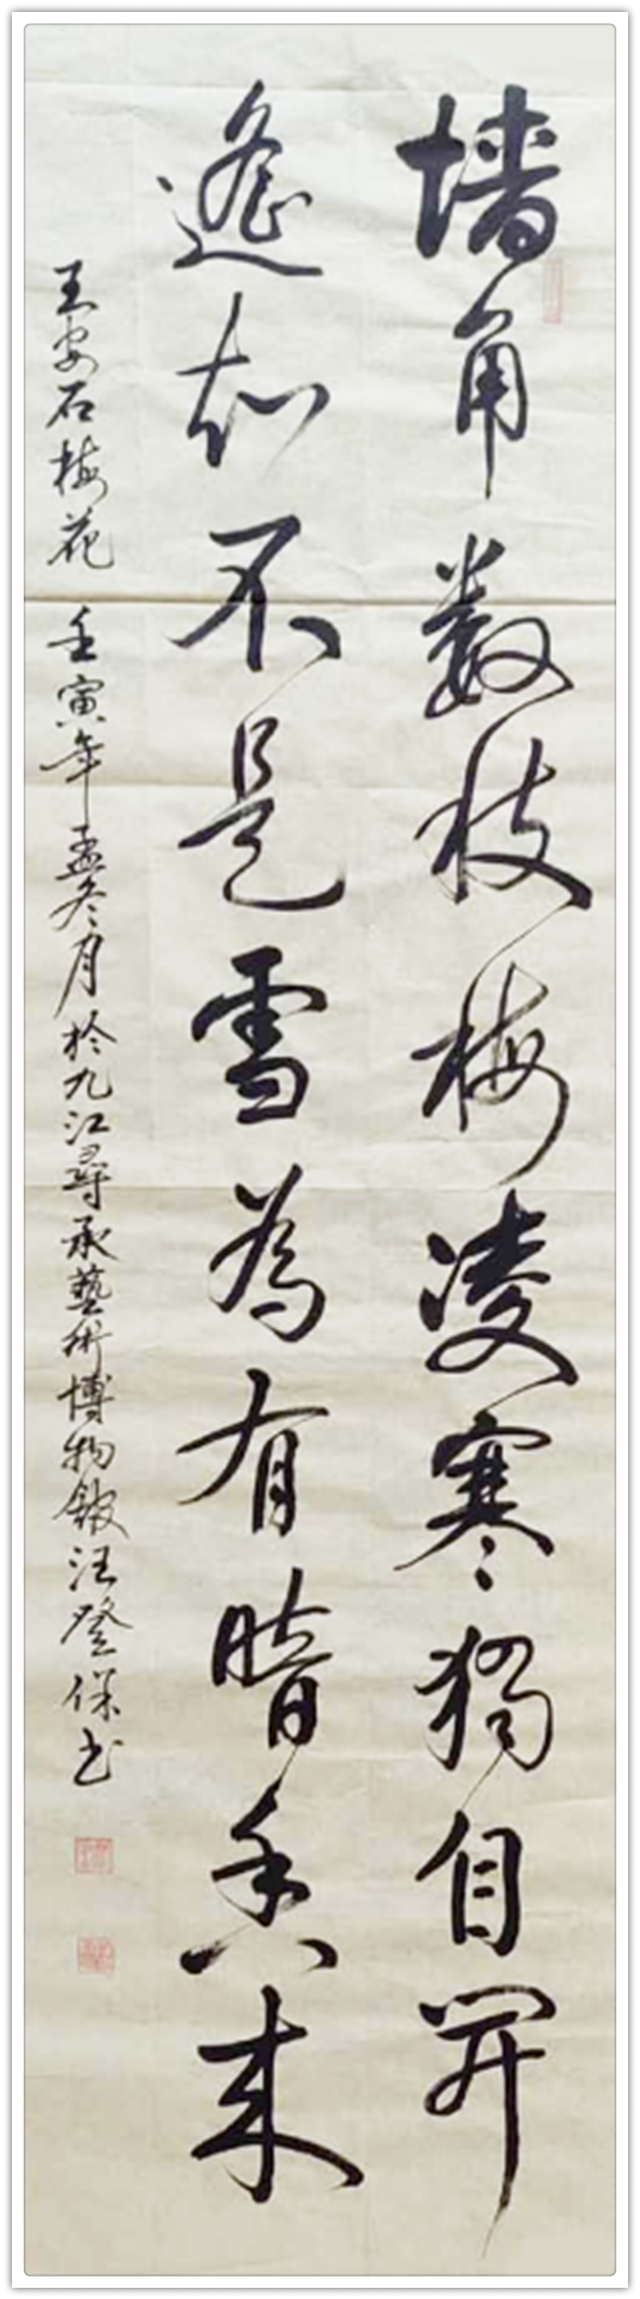 墙角数枝梅凌寒獨自開
遙知不是雪為有暗香来
王安石梅花 壬寅年孟冬月於九江尋承藝術博物館汪登保书